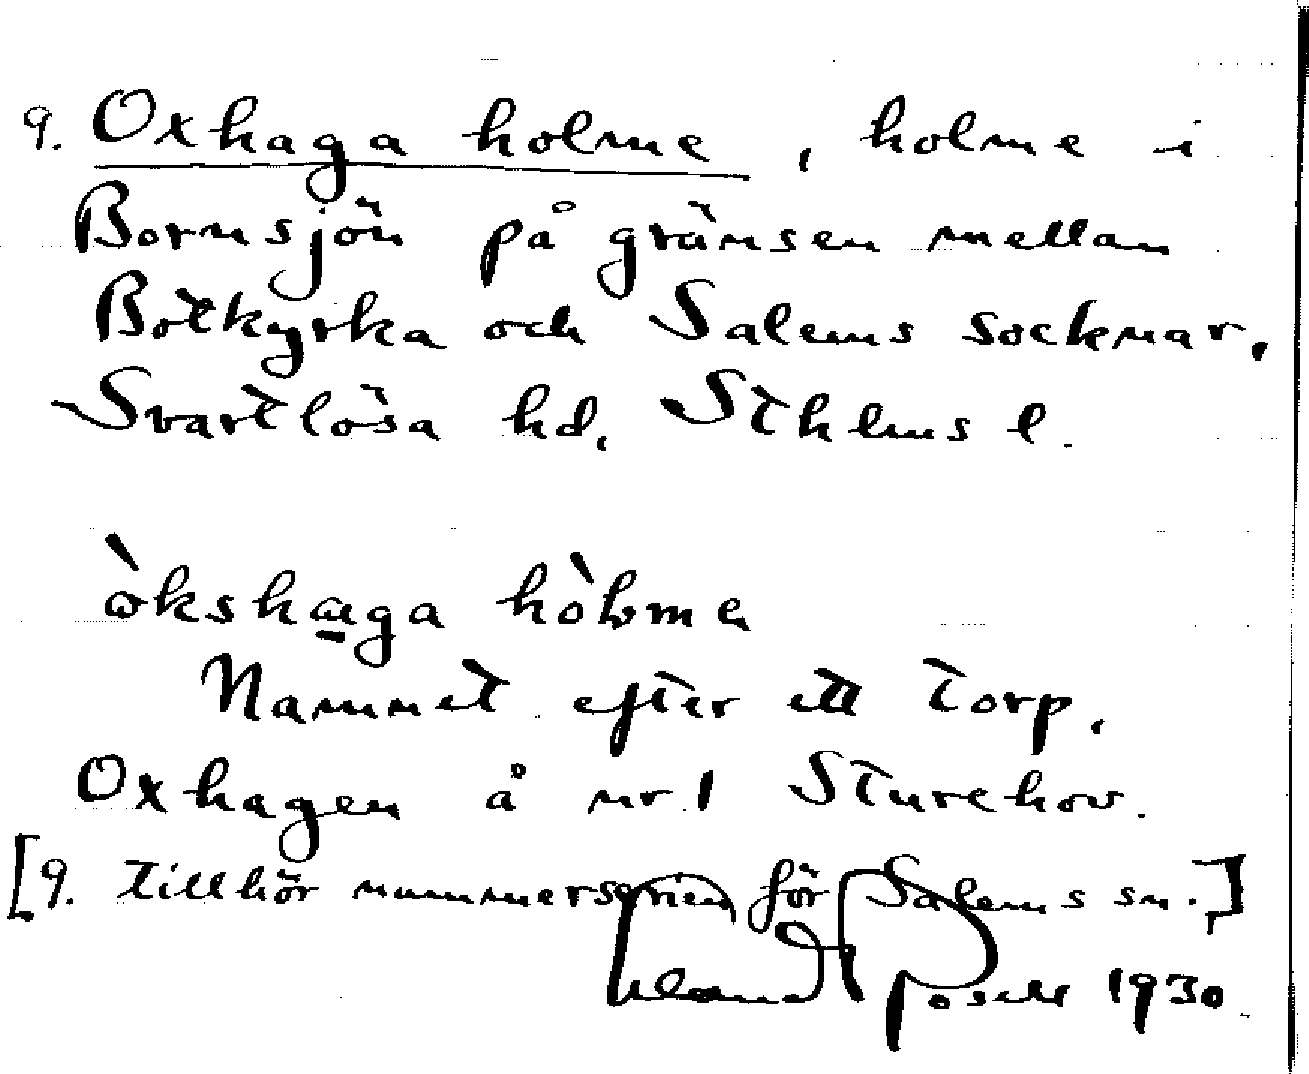 9. Oxhaga holme, holme i
Bornsjön på gränsen mellan
Botkyrka och Salems socknar,
Svartlösa hd, Sthlms l.
òkshaga hòlme
Namnet efter ett torp,
Oxhagen å nr 1 Sturehov.
[9. tillhör nummerserien för Salems sn.]
1930